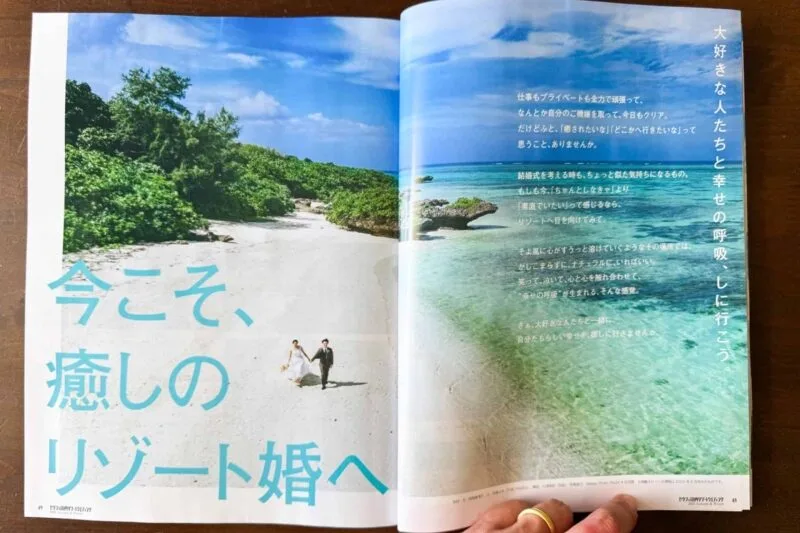 今こそ、
癒しの
リゾート婚へ
大好きな人たちと幸せの呼吸、しに行こう
仕事もプライベートも全力で頑張って、
なんとか自分のご機嫌を取って、今日もクリア。
だけどふと、「癒されたいな」「どこかへ行きたいな」って
思うこと、ありませんか。
結婚式を考える時も、ちょっと似た気持ちになるもの。
もしも今、「ちゃんとしなきゃ」より
「素直でいたい」って感じるなら、
リゾートへ目を向けてみて。
そよ風に心がすうっと溶けていくようなその場所では、
かしこまらずに、ナチュラルに、いればいい。
笑って、泣いて、心と心を触れ合わせて、
“幸せの呼吸”が生まれる、そんな感覚。
さぁ、大好きな人たちと一緒に、
自分たちらしい幸せが、癒しに行きませんか。